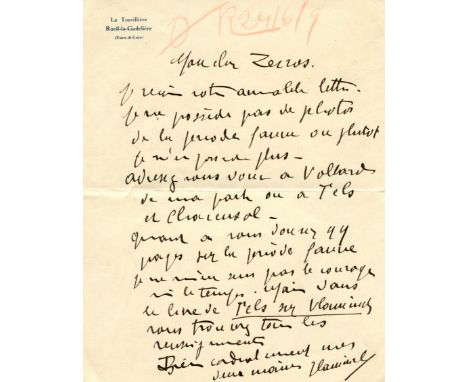 La Tourillière
Rueil-la-Gadelière
(Eure-&-Loir)
R 24/6/9
Mon cher Zervos.
Je reçois votre aimable lettre.
Je ne possède pas de photos
de la période fauve ou plutôt
je n'en possède plus -
adressez vous donc à Vollard
de ma part ou à Fels
et Charensol -
Quant à vous donner qq
pages sur la période fauve
je ne m'en sens pas le courage
ni le temps. Mais dans
le livre de Fels sur Vlaminck
vous trouverez tous les
renseignements
Bien cordialement mes
deux mains Vlaminck